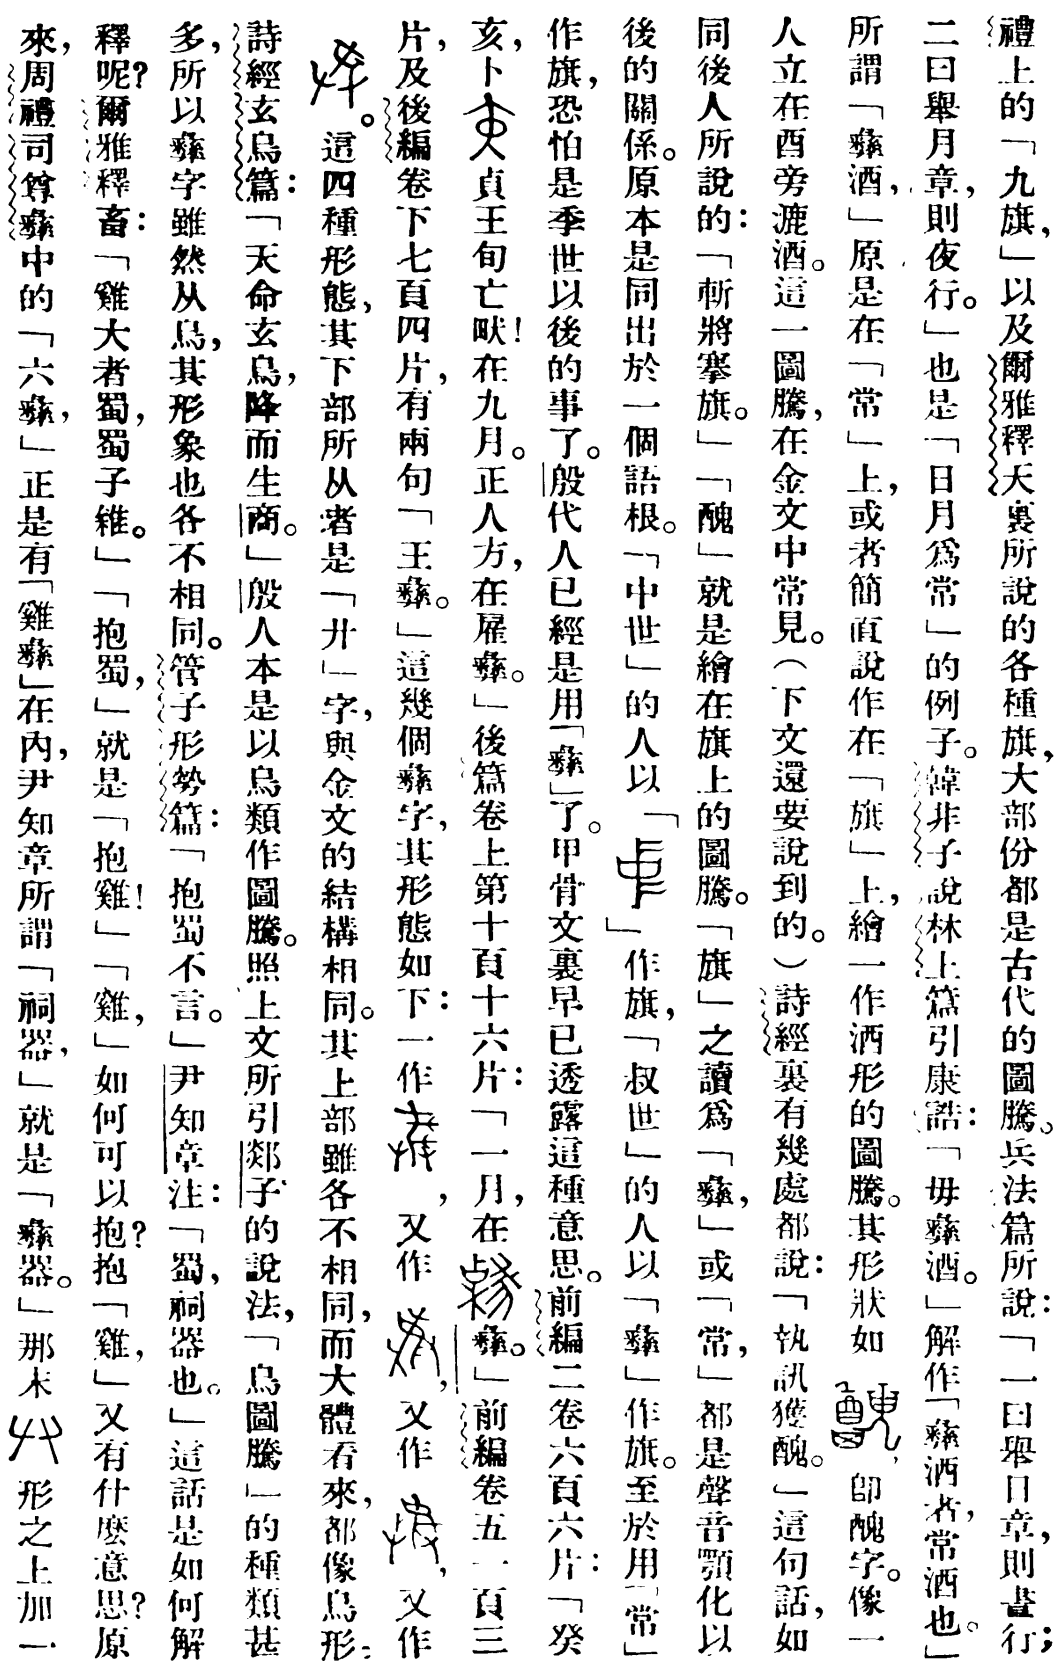 禮上的「九旗，」以及爾雅釋天裏所說的各種旗，大部份都是古代的圖騰。兵法篇所說：「一曰舉日章，則晝行；
二曰舉月章，則夜行。」也是「日月爲常」的例子。韓非子說林上篇引康誥：「毋彝酒。」解作「彝酒者，常酒也。」
所謂「彝酒，」原是在「常」上，或者簡直說作在「旗」上，繪一作酒形的圖騰。其形狀如，卽醜字。像一
人立在酉旁漉酒。這一圖騰，在金文中常見。（下文還要說到的。）詩經裏有幾處都說：「執訊獲醜。」這句話，如
同後人所說的：「斬將搴旗。」「醜」就是繪在旗上的圖騰。「旗」之讀爲「彝，」或「常，」都是聲音顎化以
後的關係。原本是同出於一個語根。「中世」的人以「」作旗，「叔世」的人以「彝」作旗。至於用「常」
作旗，恐怕是季世以後的事了。殷代人已經是用「彝」了。甲骨文裏早已透露這種意思。前編二卷六頁六片：「癸
亥，卜貞王旬亡畎！在九月。正人方，在雇彝。」後篇卷上第十頁十六片：「一月，在彝。」前編卷五一頁三
片，及後編卷下七頁四片，有兩句「王彝。」這幾個彝字，其形態如下：一作，又作，又作，又作
。這四種形態，其下部所从者是「廾」字，與金文的結構相同。其上部雖各不相同，而大體看來，都像鳥形：
詩經玄鳥篇：「天命玄鳥，降而生商。」殷人本是以鳥類作圖騰。照上文所引郯子的說法，「鳥圖騰」的種類甚
多，所以彝字雖然从鳥，其形象也各不相同。管子形勢篇：「抱蜀不言。」尹知章注：「蜀，祠器也。」這話是如何解
釋呢？爾雅釋畜：「雞大者蜀，蜀子雓。」「抱蜀，」就是「抱雞！」「雞，」如何可以抱？抱「雞，」又有什麼意思？原
來，周禮司尊彝中的「六彝，」正是有「雞彝」在內，尹知章所謂「祠器，」就是「彝器。」那末形之上加一